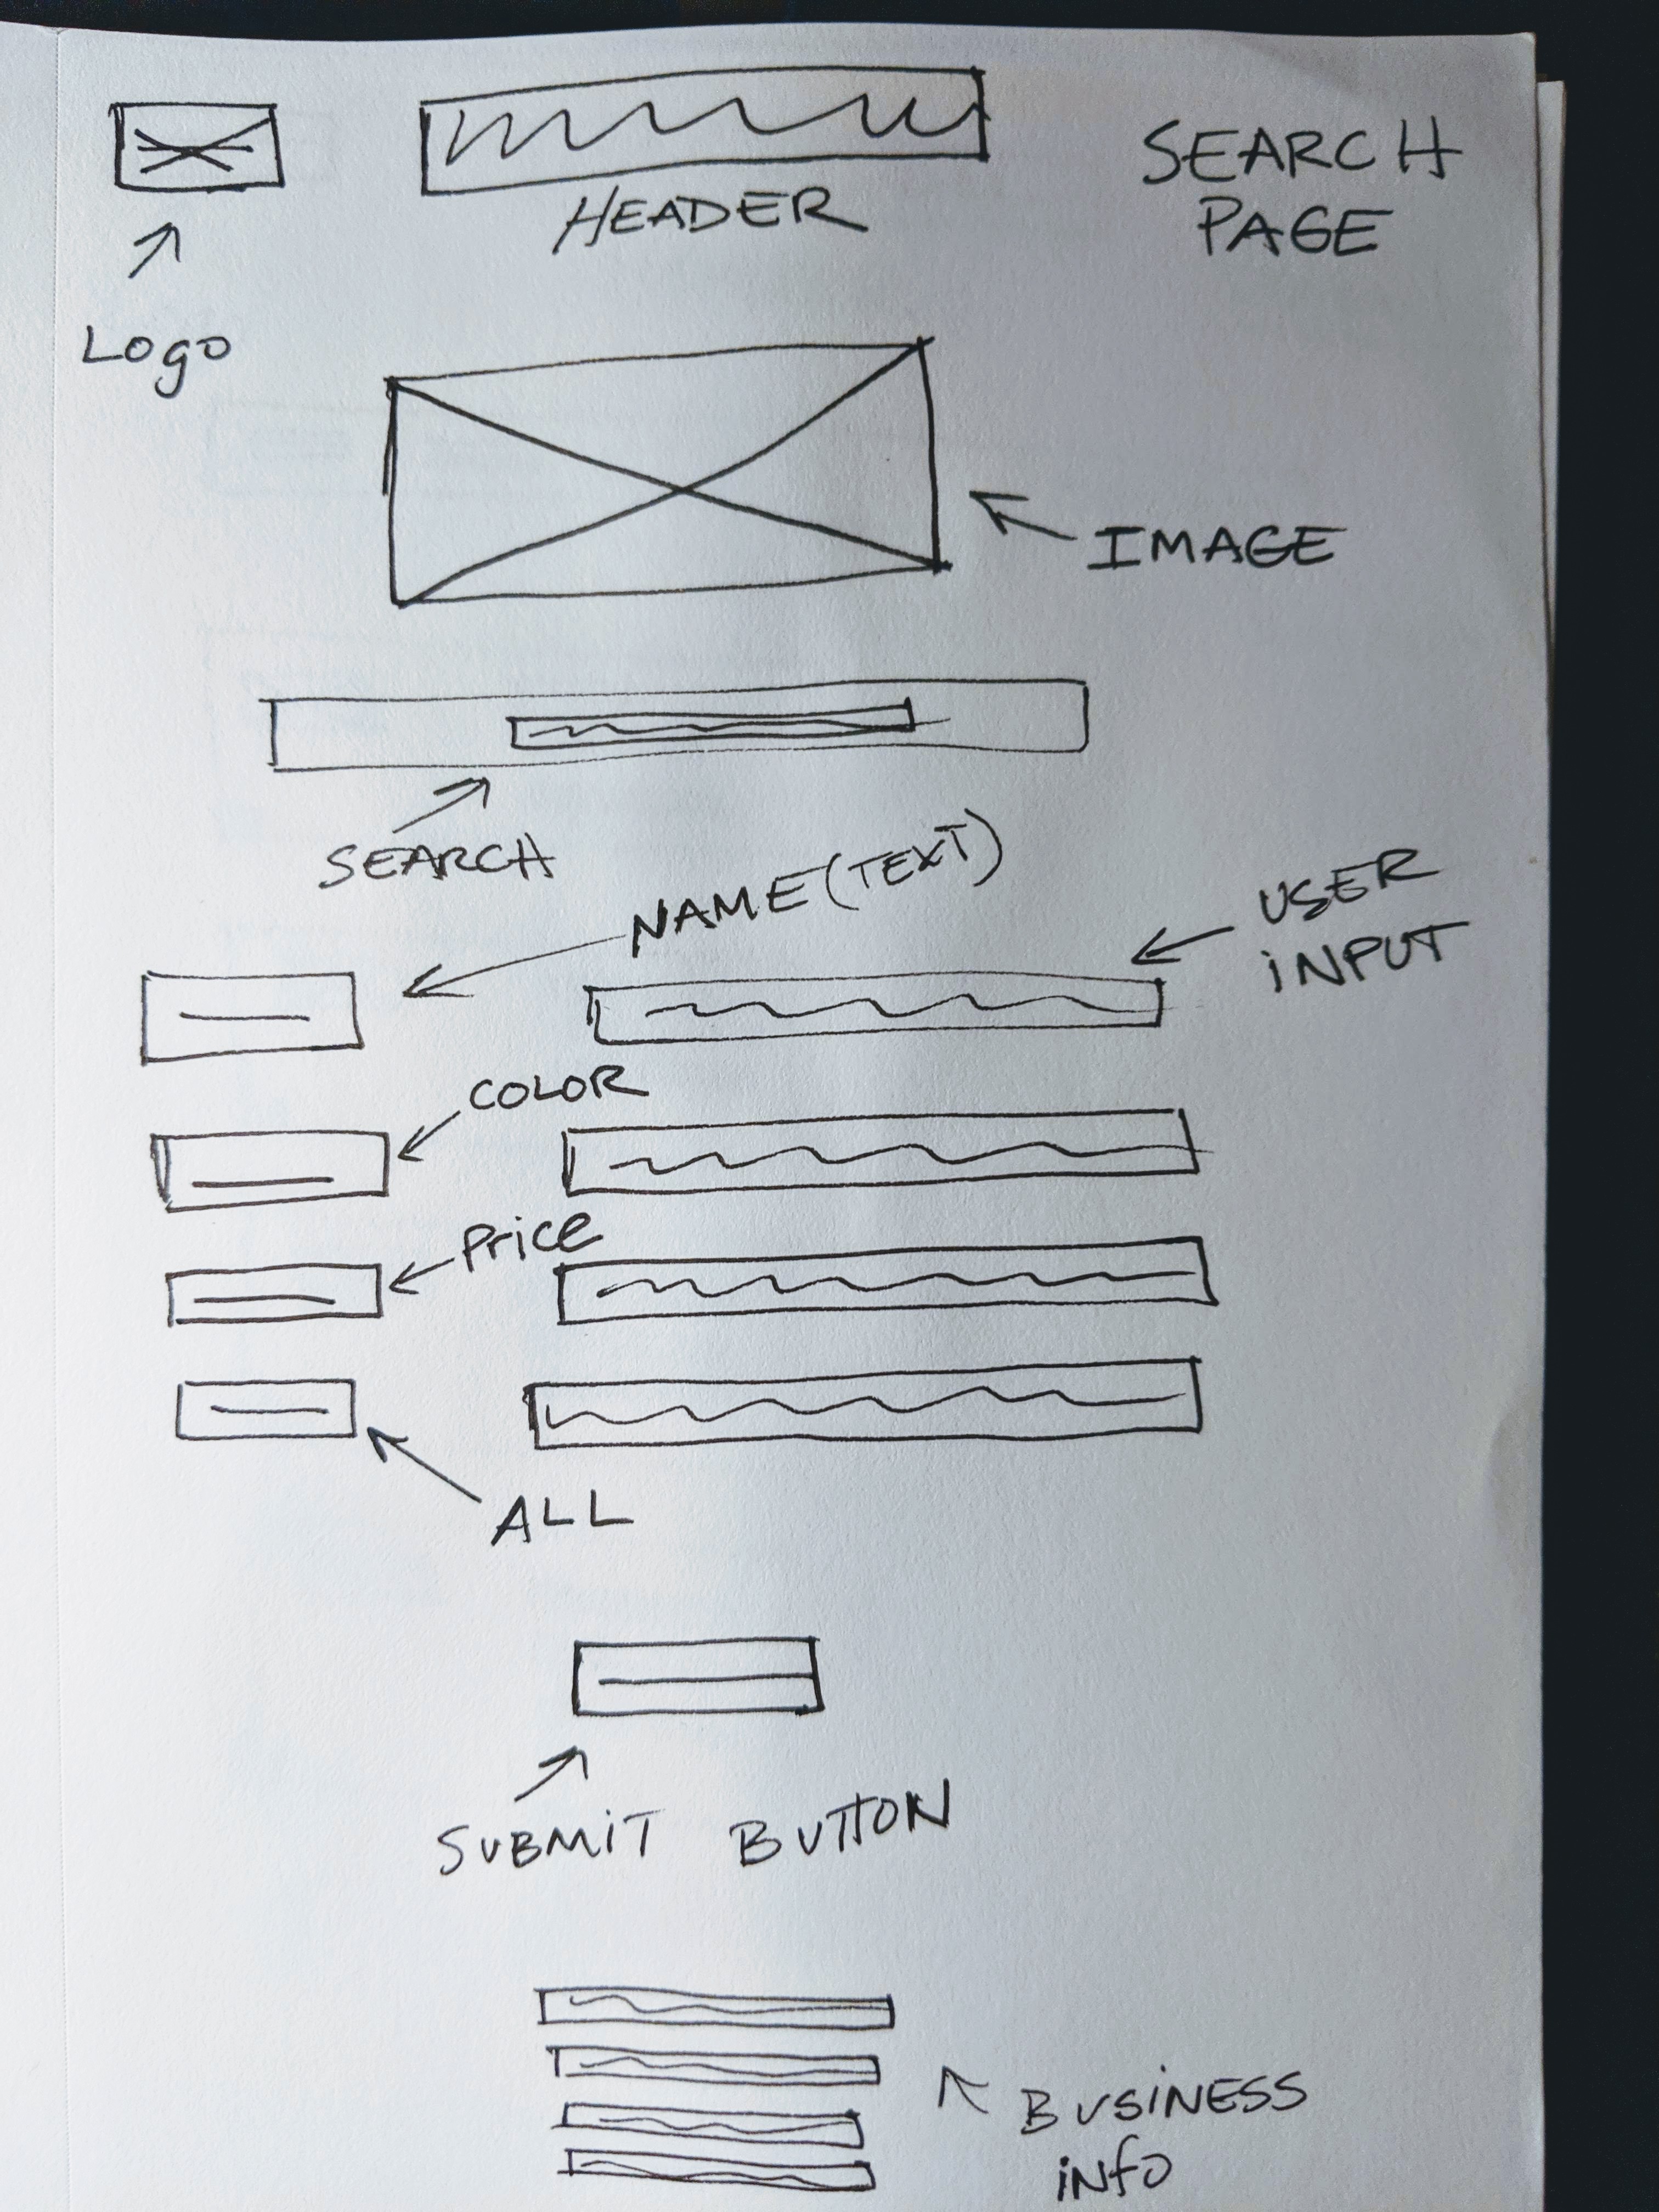 HEADER
SEARCH
PAGE
Logo
IMAGE
SEARCH
NAME (TEXT)
USER
iNPUT
COLOR
Price
ALL
SUBMiT BUTTON
BUSiNESS
iNfO